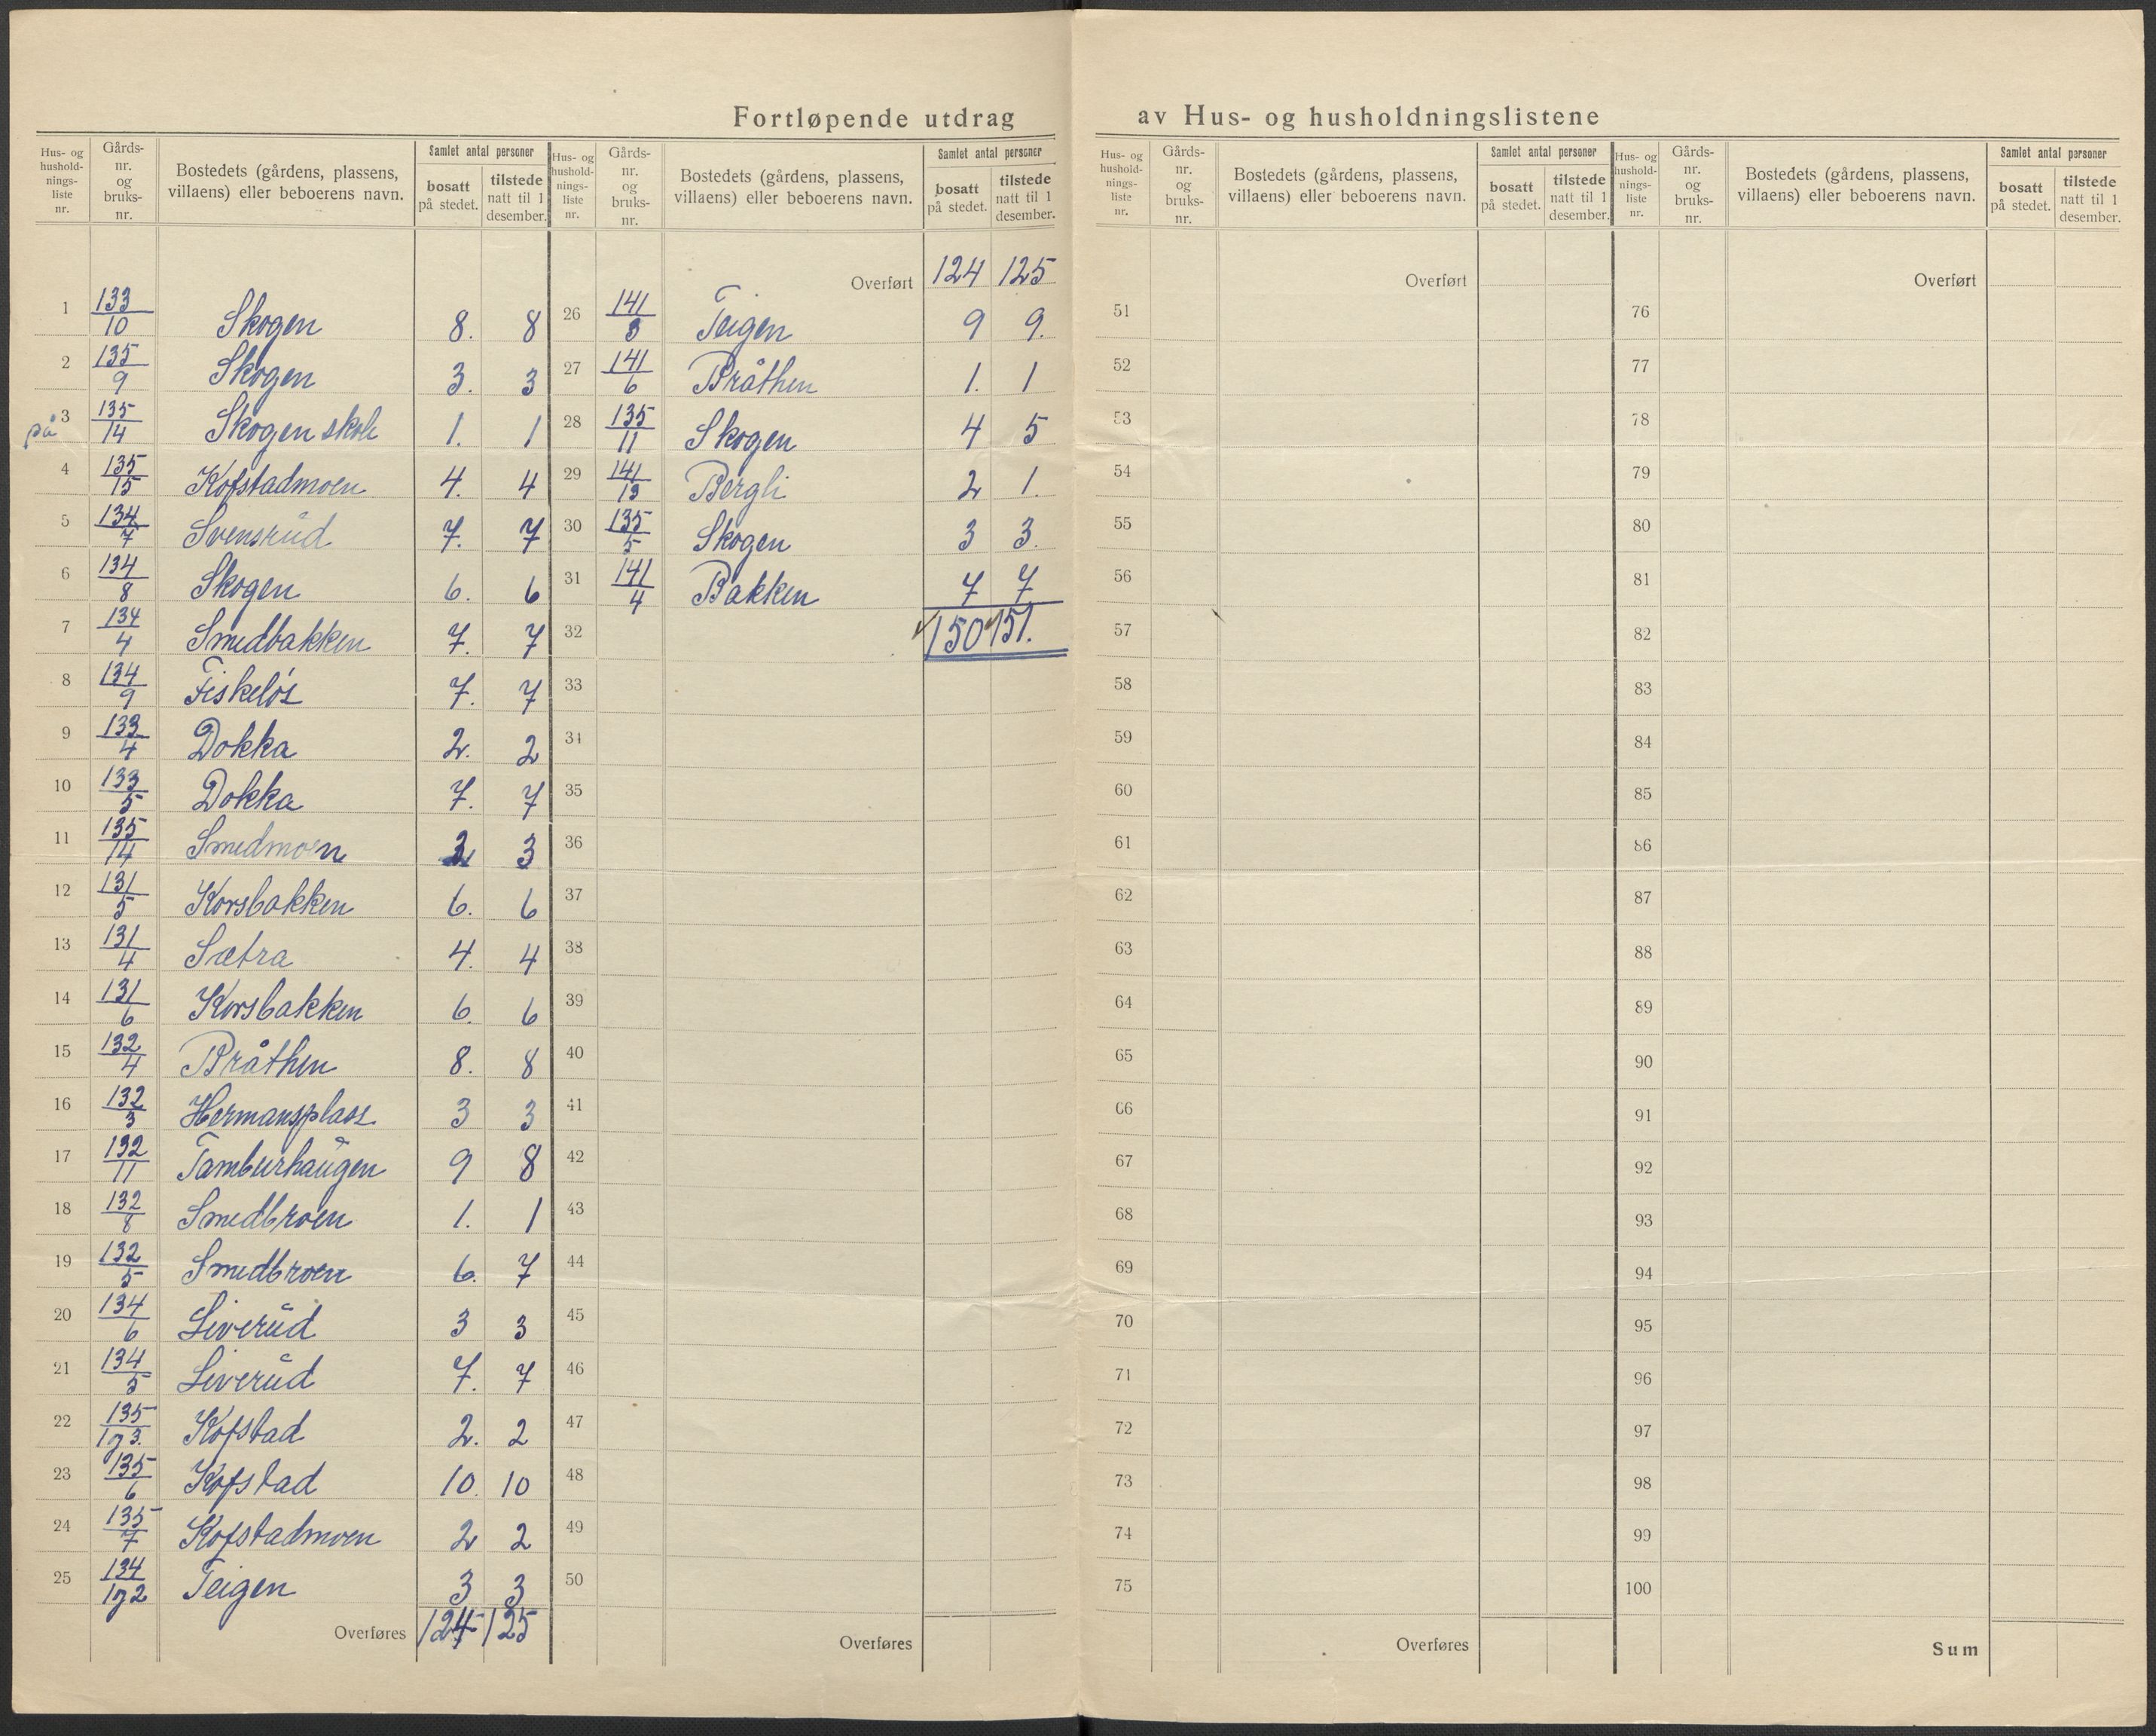 Fortløpende utdrag av Hus- og husholdningslistene
Hus- og hushold-nings-liste nr. Gårds-nr. og bruks-nr. Bostedets (gårdens, plassens, villaens) eller beboerens navn. Samlet antal personer bosatt på stedet. tilstede natt til 1 desember.
1 133/10 Skogen 8. 8
2 135/9 Skogen 3. 3
på 3 135/14 Skogen skole 1. 1
4 135/15 Kofstadmoen 4. 4
5 134/7 Svensrud 7. 7
6 134/8 Skogen 6. 6
7 134/4 Smedbakken 7. 7
8 134/9 Fiskeløs 7. 7
9 133/4 Dokka 2. 2
10 133/5 Dokka 7. 7
11 135/14 Smedmoen 3
12 131/5 Korsbakken 6. 6
13 131/4 Sætra 4. 4
14 131/6 Korsbakken 6. 6
15 132/4 Bråthen 8. 8
16 132/3 Hermansplass 3 3
17 132/11 Tamburhaugen 9 8
18 132/8 Smedbroen 1. 1
19 132/5 Smedbroen 6. 7
20 134/6 Liverud 3 3
21 134/5 Liverud 7. 7
22 135/1 og 3. Kofstad 2. 2
23 135/6 Kofstad 10. 10
24 135/7 Kofstadmoen 2 2
25 134/1 og 2 Teigen 3 3
Overføres 124 125
Hus- og hushold-nings-liste nr. Gårds-nr. og bruks-nr. Bostedets (gårdens, plassens, villaens) eller beboerens navn. Samlet antal personer bosatt på stedet. tilstede natt til 1 desember.
Overført 124 125
26 141/3 Teigen 9 9.
27 141/6 Bråthen 1. 1
28 135/11 Skogen 4 5
29 141/13 Bergli 2 1.
30 135/5 Skogen 3 3.
31 141/4 Bakken 7 7
32 150 151.
33
34
35
36
37
38
39
40
41
42
43
44
45
46
47
48
49
50
Overføres
Hus- og hushold-nings-liste nr. Gårds-nr. og bruks-nr. Bostedets (gårdens, plassens, villaens) eller beboerens navn. Samlet antal personer bosatt på stedet. tilstede natt til 1 desember.
Overført
51
52
53
54
55
56
57
58
59
60
61
62
63
64
65
66
67
68
69
70
71
72
73
74
75
Overføres
Hus- og hushold-nings-liste nr. Gårds-nr. og bruks-nr. Bostedets (gårdens, plassens, villaens) eller beboerens navn. Samlet antal personer bosatt på stedet. tilstede natt til 1 desember.
Overført
76
77
78
79
80
81
82
83
84
85
86
87
88
89
90
91
92
93
94
95
96
97
98
99
100
Sum